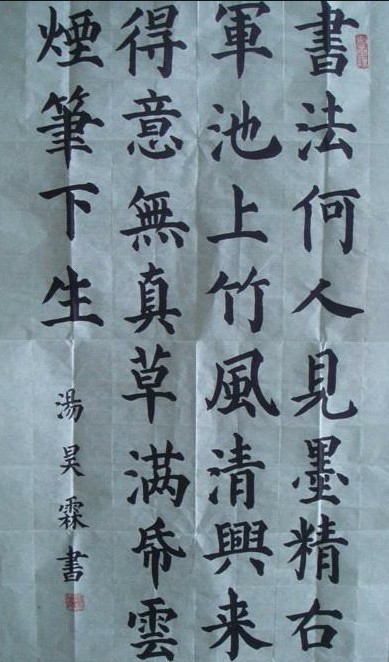 書法何人見墨精右
軍池上竹風清興来
得意無真草满帋雲
煙筆下生
湯昊霖書